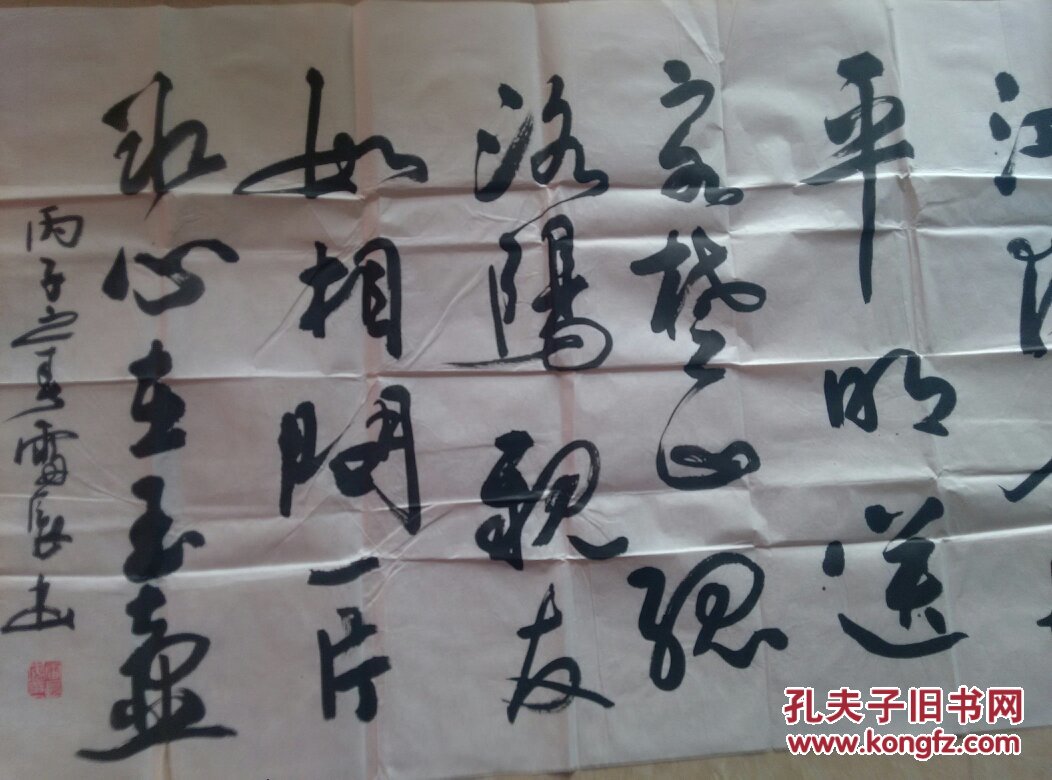 江
平明送
客楚山孤
洛陽親友
如相問一片
冰心在玉壺
丙子之春雷书
孔夫子旧书网
www.kongfz.com